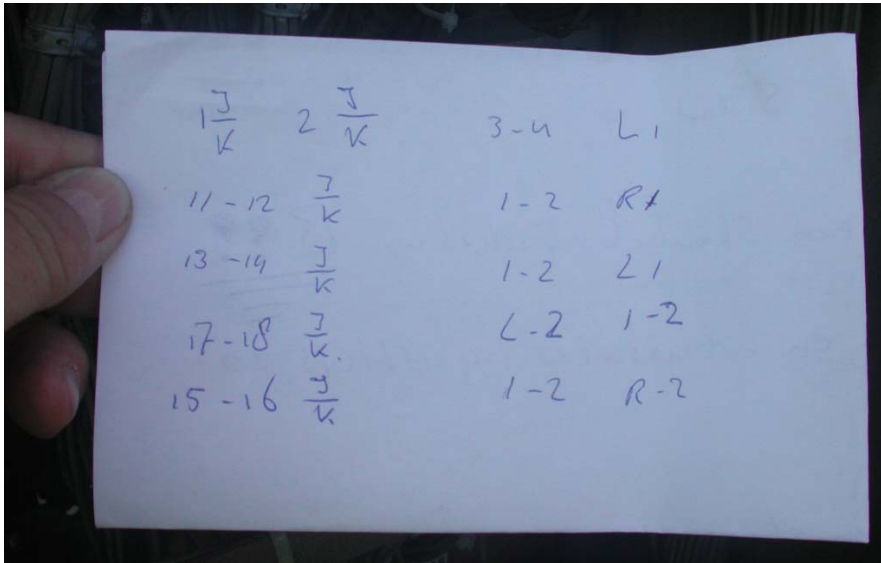 1 J/K 2 J/K 3-4 L1
11-12 J/K 1-2 R1
13-14 J/K 1-2 L1
17-18 J/K. L-2 1-2
15-16 J/K. 1-2 R-2